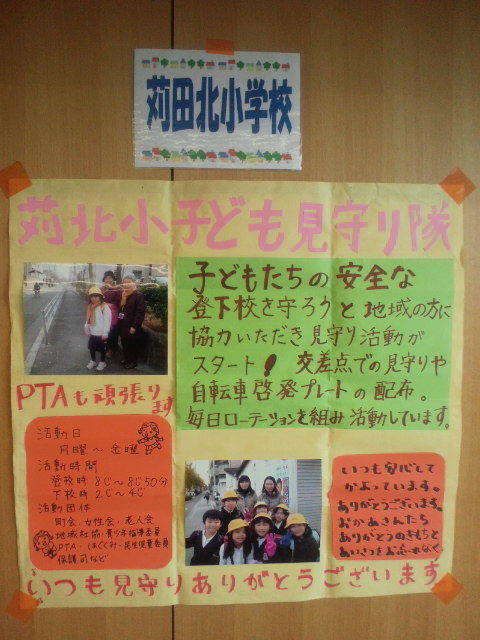 苅田北小学校
苅北小子ども見守り隊
子どもたちの安全な
登下校を守ろうと地域の方に
協力いただき見守り活動が
スタート! 交差点での見守りや
自転車啓発プレートの配布。
毎日ローテーションを組み活動しています。
PTAも頑張ります
活動日
月曜〜金曜
活動時間
登校時 8じ〜8じ50分
下校時 2じ〜4じ
活動団体
町会、女性会・老人会
地域社協・青少年指導委員
PTA・はぐくみ・民生児童委員
保護司など
いつも安心して
かよっています。
ありがとうございます。
おかあさんたち
ありがとうのきもちと
あいさつをお忘れなく
いつも見守りありがとうございます